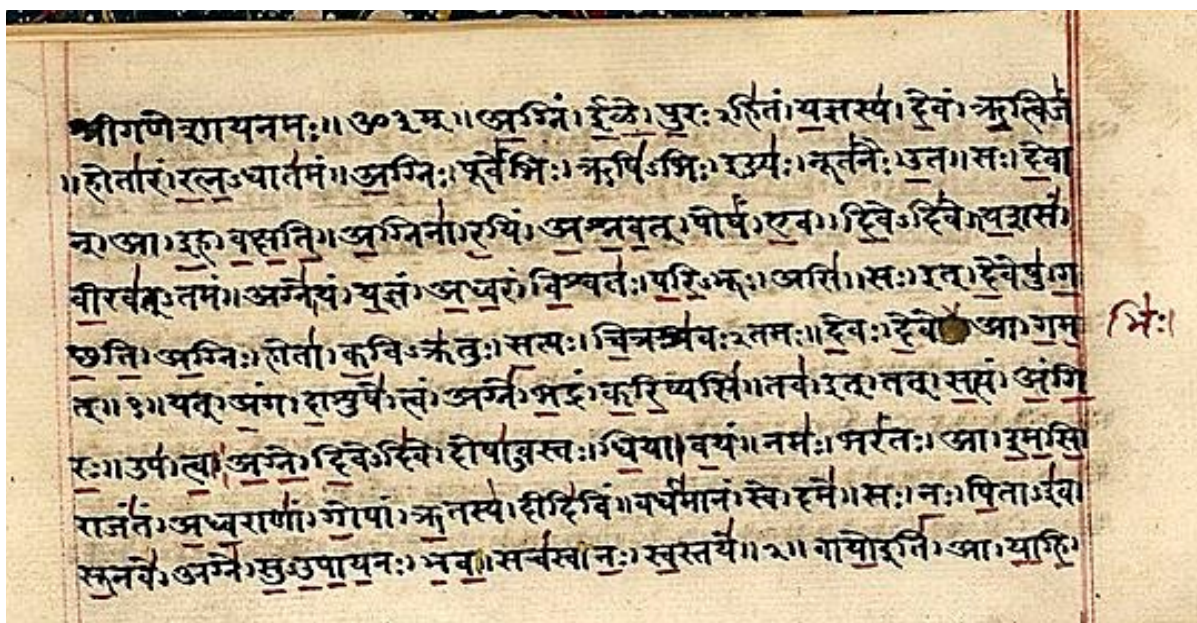 श्रीगणेशायनमः॥ॐ३म्॥अग्निं।ईळे।पुरःऽहितं।यज्ञस्य।देवं।ऋत्विजं
॥होतारं।रत्नऽधातमं॥अग्निः।पूर्वेभिः।ऋषिऽभिः।ईड्यः।नूतनैः।उत॥सः।देवा
न्।आ।इह।वक्षति॥अग्निना।रयिं।अश्नवत्।पोषं।एव॥दिवेऽदिवे।यशसं
वीरवत्ऽतमं॥अग्नेयं।यज्ञं।अध्वरं।विश्वतः।परिऽभूः।असि॥सः।इत्।देवेषु।ग
छति।अग्निः।होता।कविऽक्रतुः।सत्यः।चित्रश्रवःऽतमः॥देवः।देवे आ।गम
भिः।
त्॥१॥यत्।अंग।दाशुषे।त्वं।अग्ने।भद्रं।करिष्यसि॥तव।इत्।तत्।सत्यं।अंगि
रः॥उप।त्वा।अग्ने।दिवेऽदिवे।दोषाऽवस्तः।धिया।वयं॥नमः।भरंतः।आ।इमसि
राजंतं।अध्वराणां।गोपां।ऋतस्य।दीदिविं॥वर्धमानं।स्वे।दमे॥सः।नः।पिताऽइव
सूनवे।अग्ने।सुऽउपायनः।भव॥सचस्वानः।स्वस्तये॥२॥वायोइति।आ।याहि।